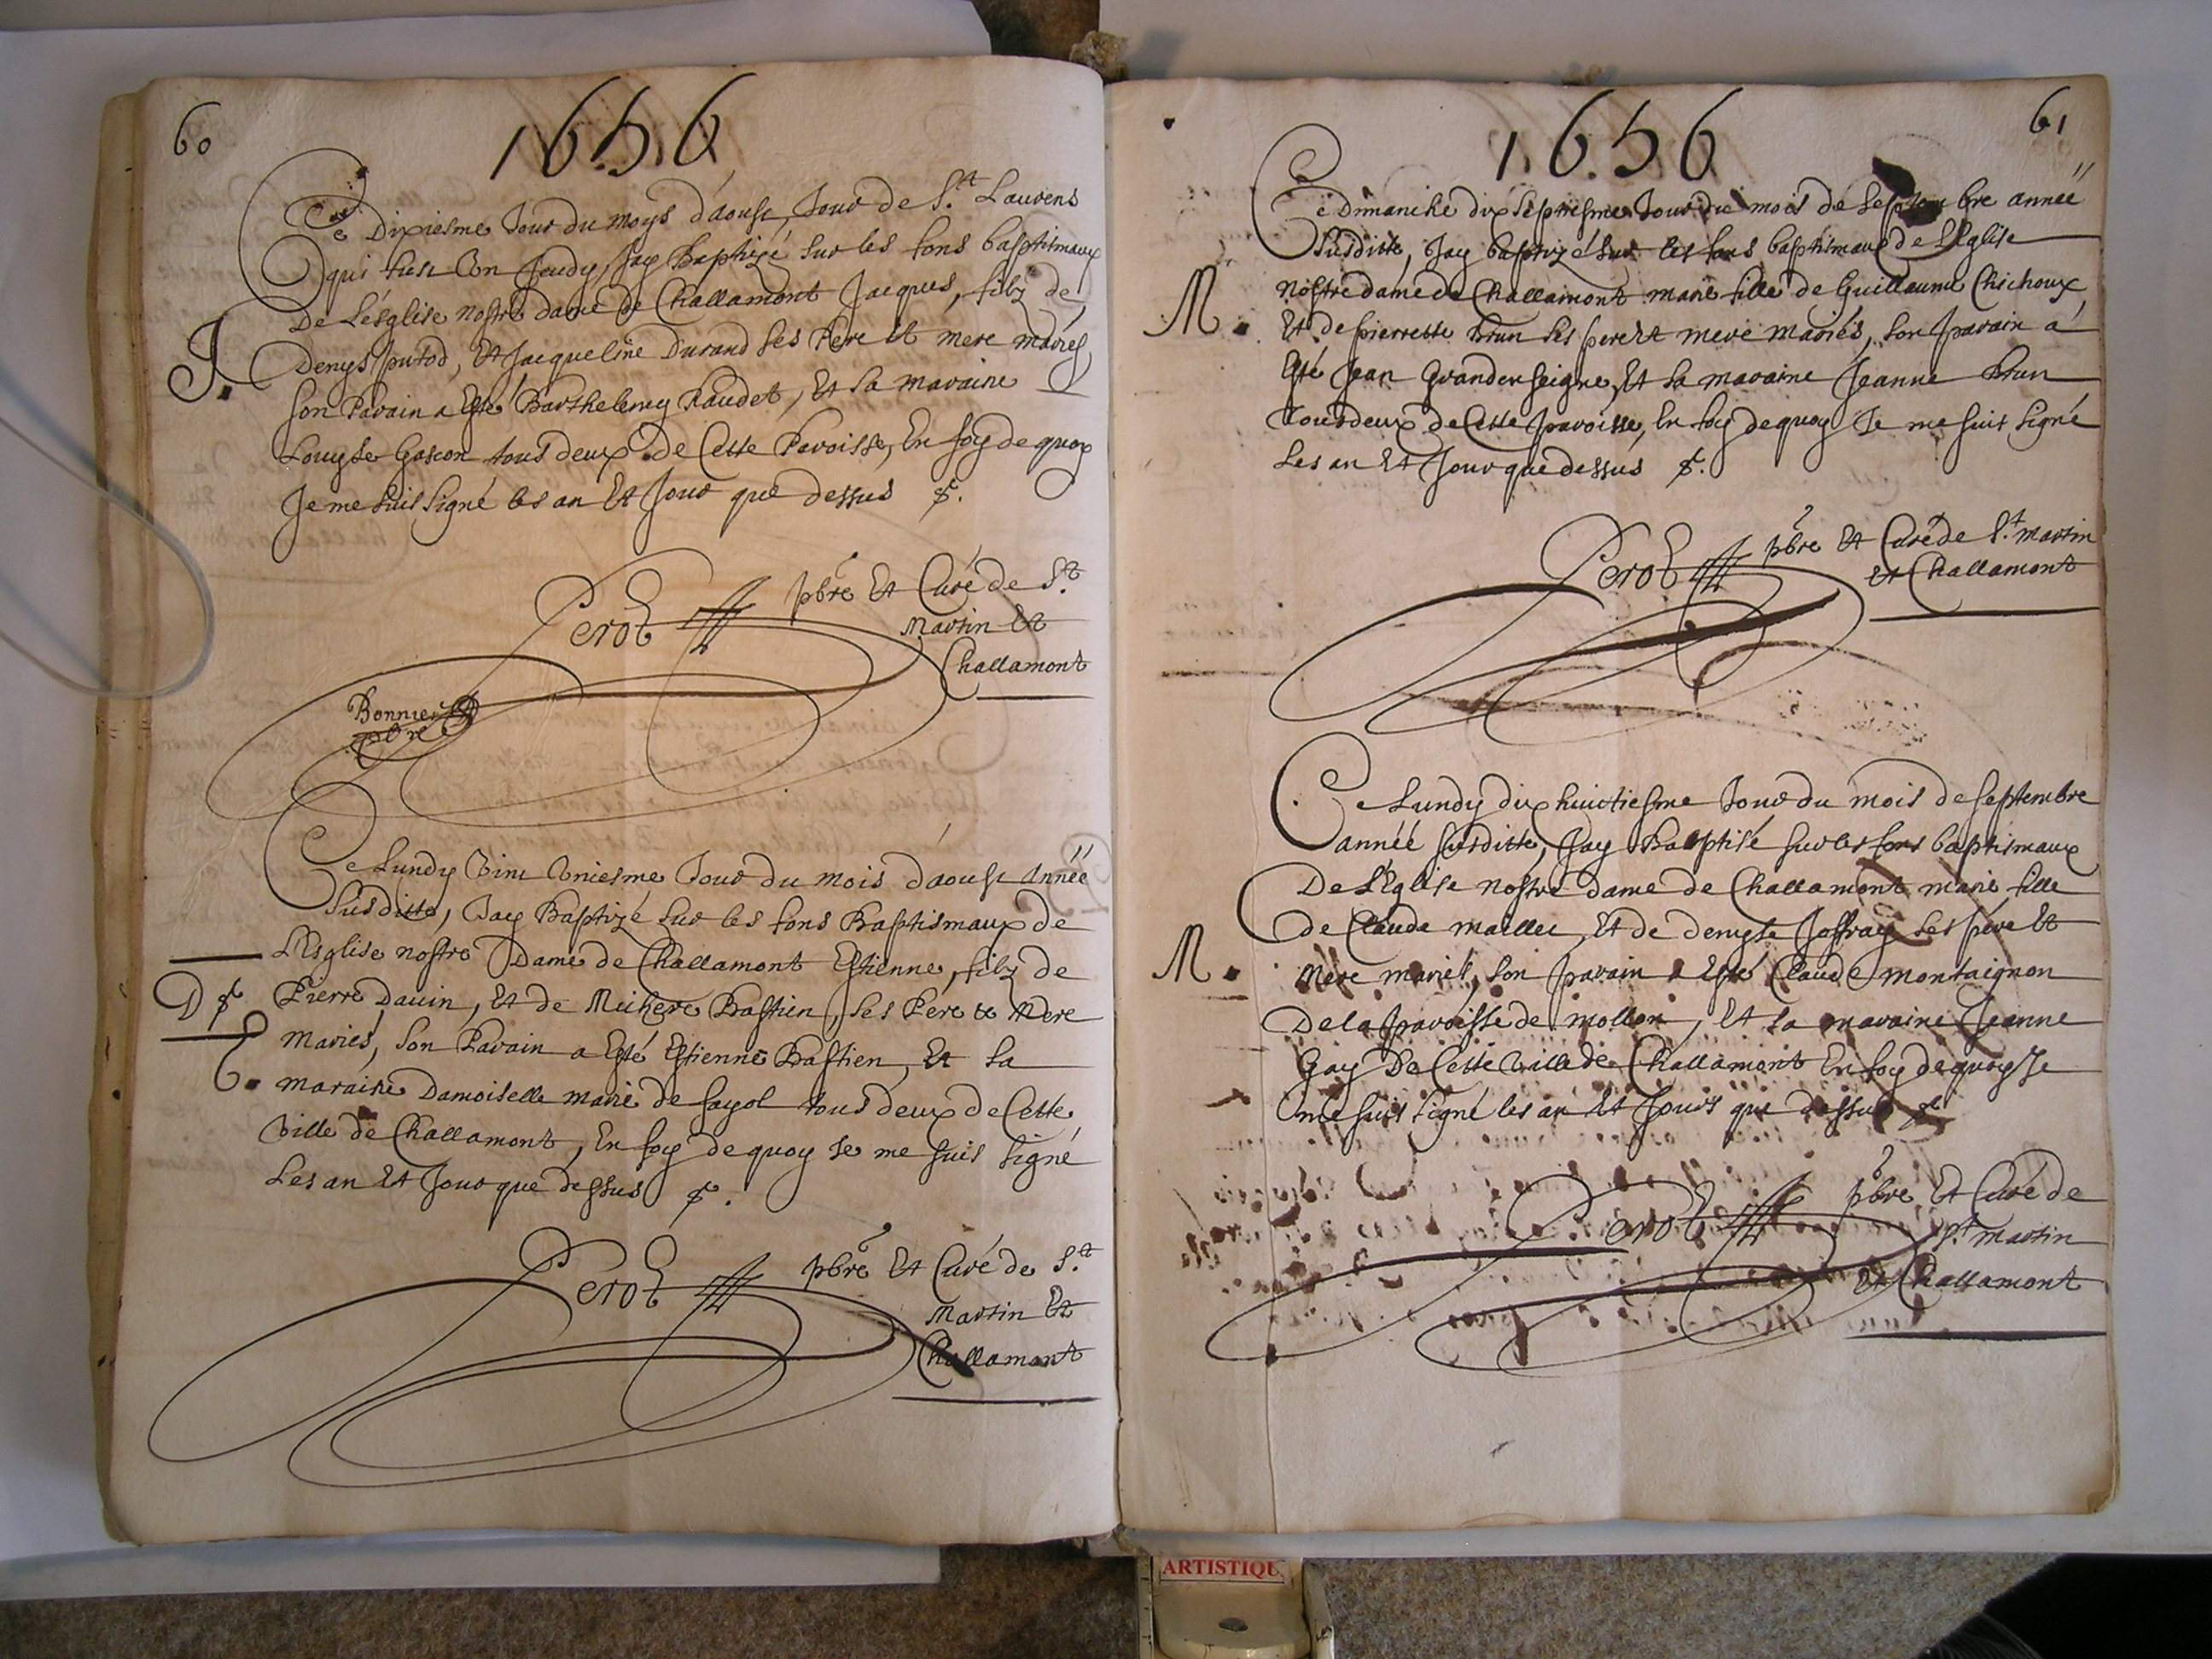 60
1656
Ce Dixiesme Jour du moys d'aoust, Jour de St. Laurens
qui fust un Jeudy, Jay Baptizé sur les fons baptismaux
De L'ésglise nostre dame de Challamont Jacques, filz de
J.
Denys putod, Et Jacqueline Durand ses Pere Et mere mariés,
son Parain a Esté Barthelemy Raudet, Et sa maraine
Louyse Gascon tous deux de Cette Paroisse, En foy de quoy
Je me suis signé les an Et Jour que dessus &.
Perot pbre Et Curé de St.
Martin Et
Challamont
Bonnier
pbre
Ce Lundy vint uniesme Jour du mois d'aoust Année
susditte, Jay Baptizé sur les fons Baptismaux de
L'Esglise nostre Dame de Challamont Estienne, filz de
D &
Pierre Dauin, Et de Michere Bastien, ses Pere & Mere
E.
mariés, son Parain a Esté Estienne Bastien, Et sa
maraine Damoiselle marie de fayol tous deux de Cette
ville de Challamont, En foy de quoy Je me suis signé
Les an Et Jour que dessus &.
Perot pbre Et Curé de St.
Martin Et
Challamont
61
1656
Ce Dimanche dix septiesme Jour du mois de septembre année
susditte, Jay baptizé sur les fons baptismaux de L'Eglise
M.
nostre dame de Challamont marie fille de Guillaume Chichoux,
Et de pierrette Brun ses pere Et mere mariés, son parain a
Esté Jean Grandenseigne, Et sa maraine Jeanne Brun
Tous deux de Cette paroisse, En foy de quoy Je me suis signé
Les an Et Jour que dessus &.
Perot pbre Et Curé de St. martin
et Challamont
Ce Lundy dix huictiesme Jour du mois de septembre
année susditte, Jay Baptisé sur les fons baptismaux
De L'Eglise nostre dame de Challamont marie fille
de Claude maillec, Et de denyse Joffray ses pére Et
M.
Mere mariés, son parain a Esté Claude montaignon
De la paroisse de mollon, Et sa maraine Jeanne
Gay De Cette ville de Challamont En foy de quoy Je
me suis signé les an Et Jours que dessus &
Perot pbre Et Curé de
St. martin
Et Challamont
ARTISTIQU